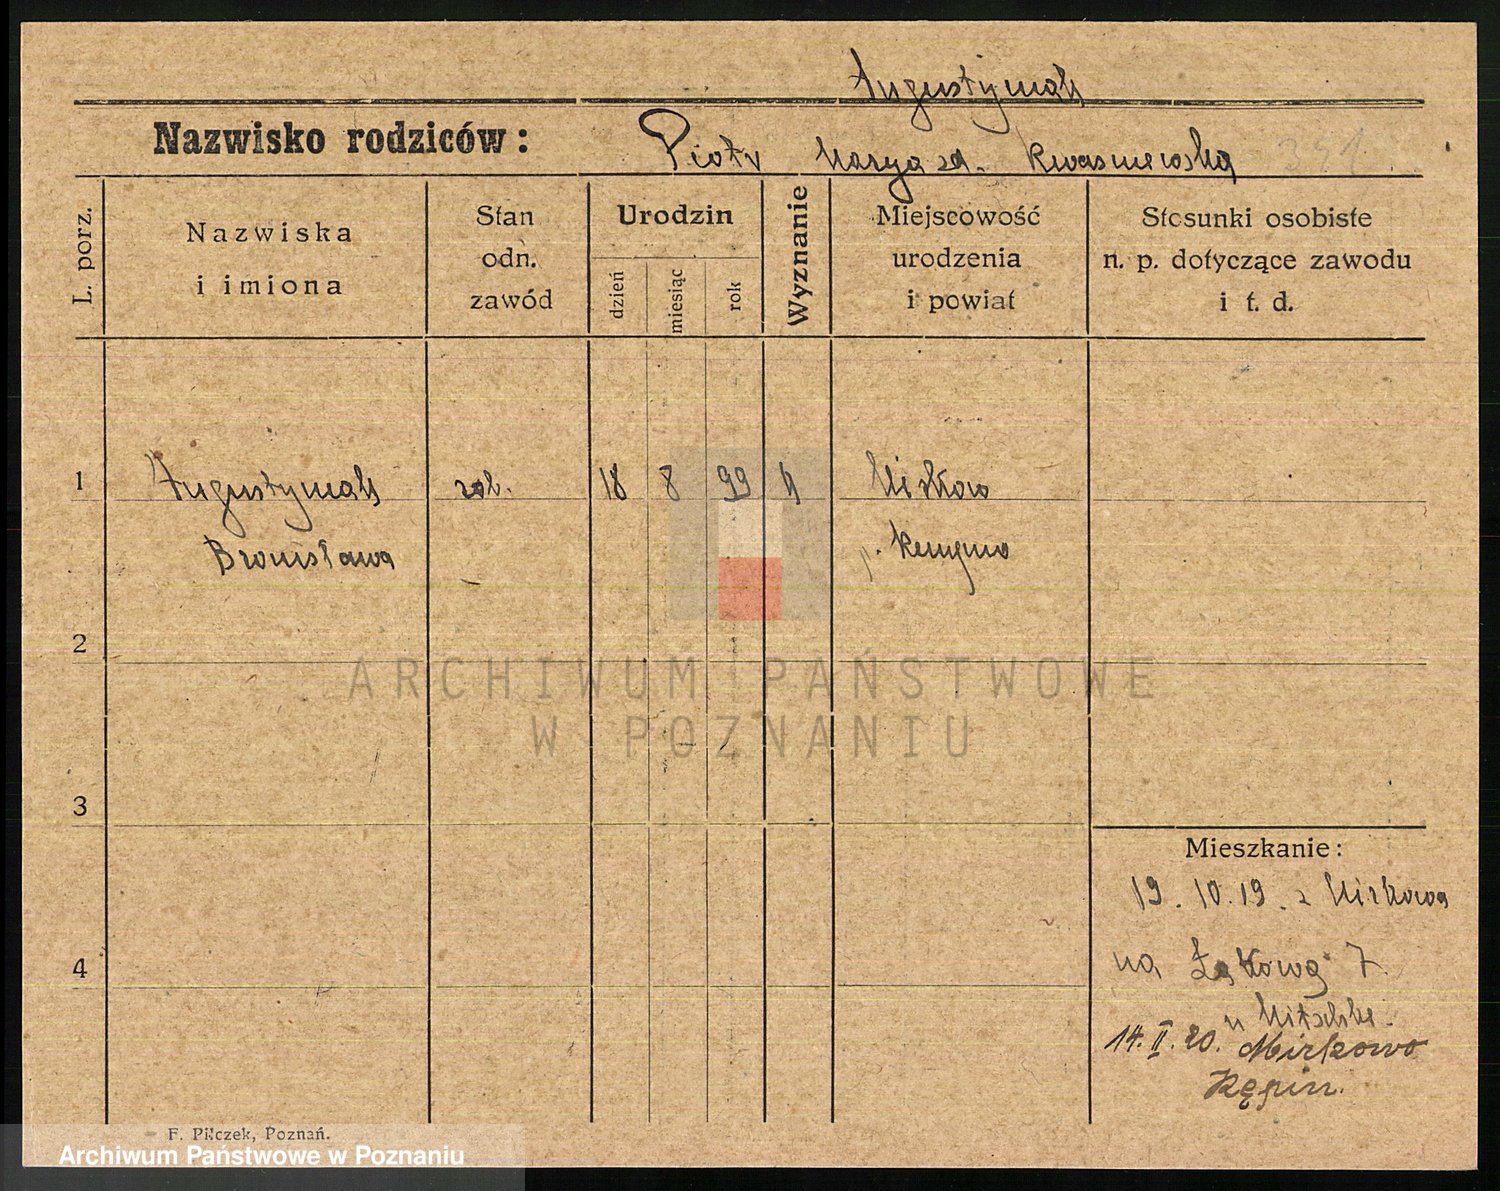 Augustyniak
Nazwisko rodziców: Piotr Marya zd. Kwasniewska 341
L. porz.
Nazwiska
i imiona
Stan
odn.
zawód
Urodzin
dzień
miesiąc
rok
Wyznanie
Miejscowość
urodzenia
i powiat
Stosunki osobiste
n. p. dotyczące zawodu
i t. d.
1 Augustyniak rob. 18 8 99 k Mirkow
Bronisława p. Kempno
2
ARCHIWUM PAŃSTWOWE
W POZNANIU
3
Mieszkanie:
19. 10. 19. z Mirkowa
4 na Łąkową 7.
u Nitschke
14. II. 20. Mirkowo
Kępin.
F. Pilczek, Poznań.
Archiwum Państwowe w Poznaniu